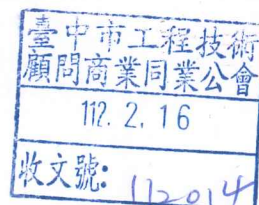 臺中市工程技術
顧問商業同業公會
112. 2. 16
收文號: 112014